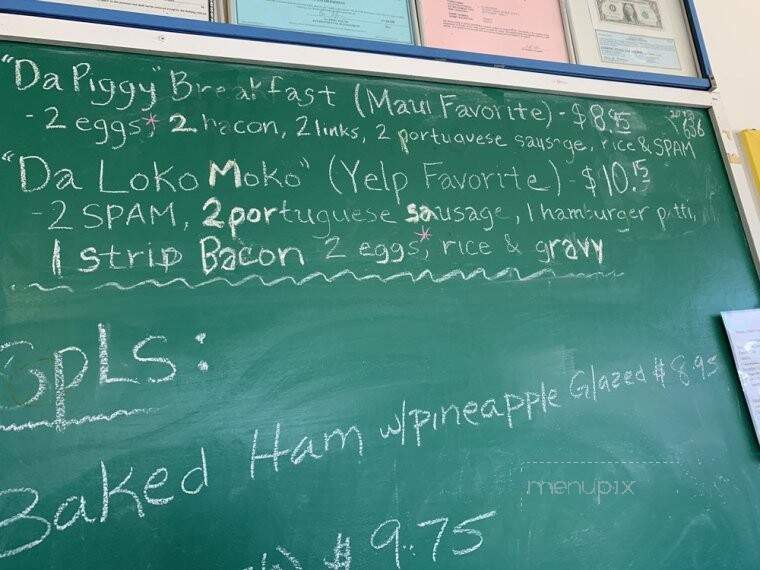 "Da Piggy" Breakfast (Maui Favorite) - $8.95
- 2 eggs,* 2 bacon, 2 links, 2 portuguese sausage, rice & SPAM
"Da Loko Moko" (Yelp Favorite) - $10.15
- 2 SPAM, 2 portuguese sausage, 1 hamburger patti,
1 strip Bacon 2 eggs,* rice & gravy
SpLS:
Baked Ham w/pineapple Glazed $8.95
$9.75
menupix